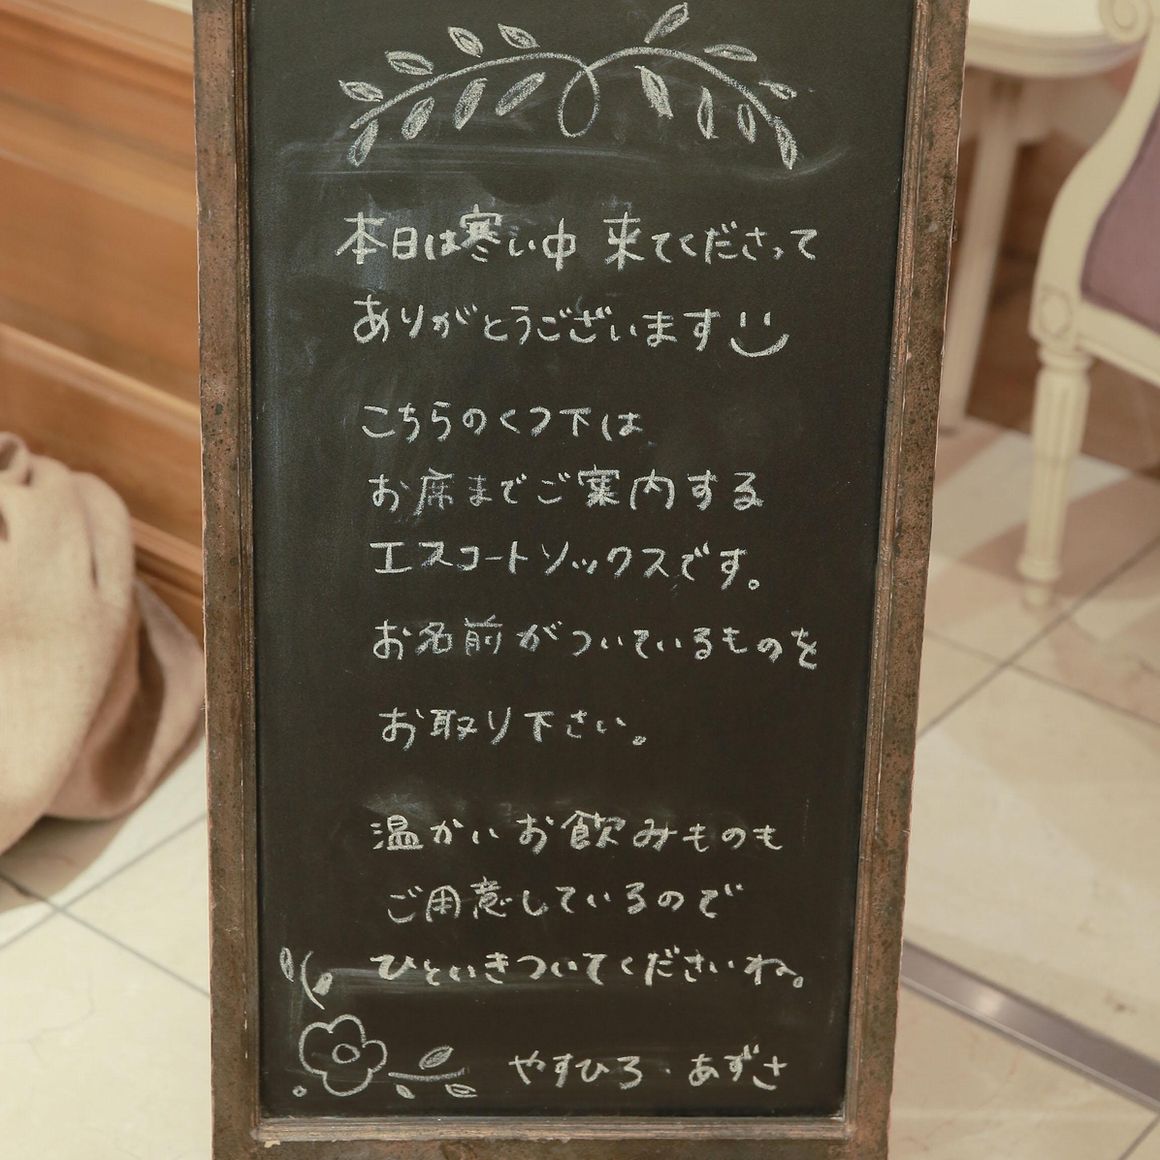 本日は寒い中 来てくださって
ありがとうございます
こちらのくつ下は
お席までご案内する
エスコートソックスです。
お名前がついているものを
お取り下さい。
温かいお飲みものも
ご用意しているので
ひといきついてくださいね。
やすひろ・あずさ